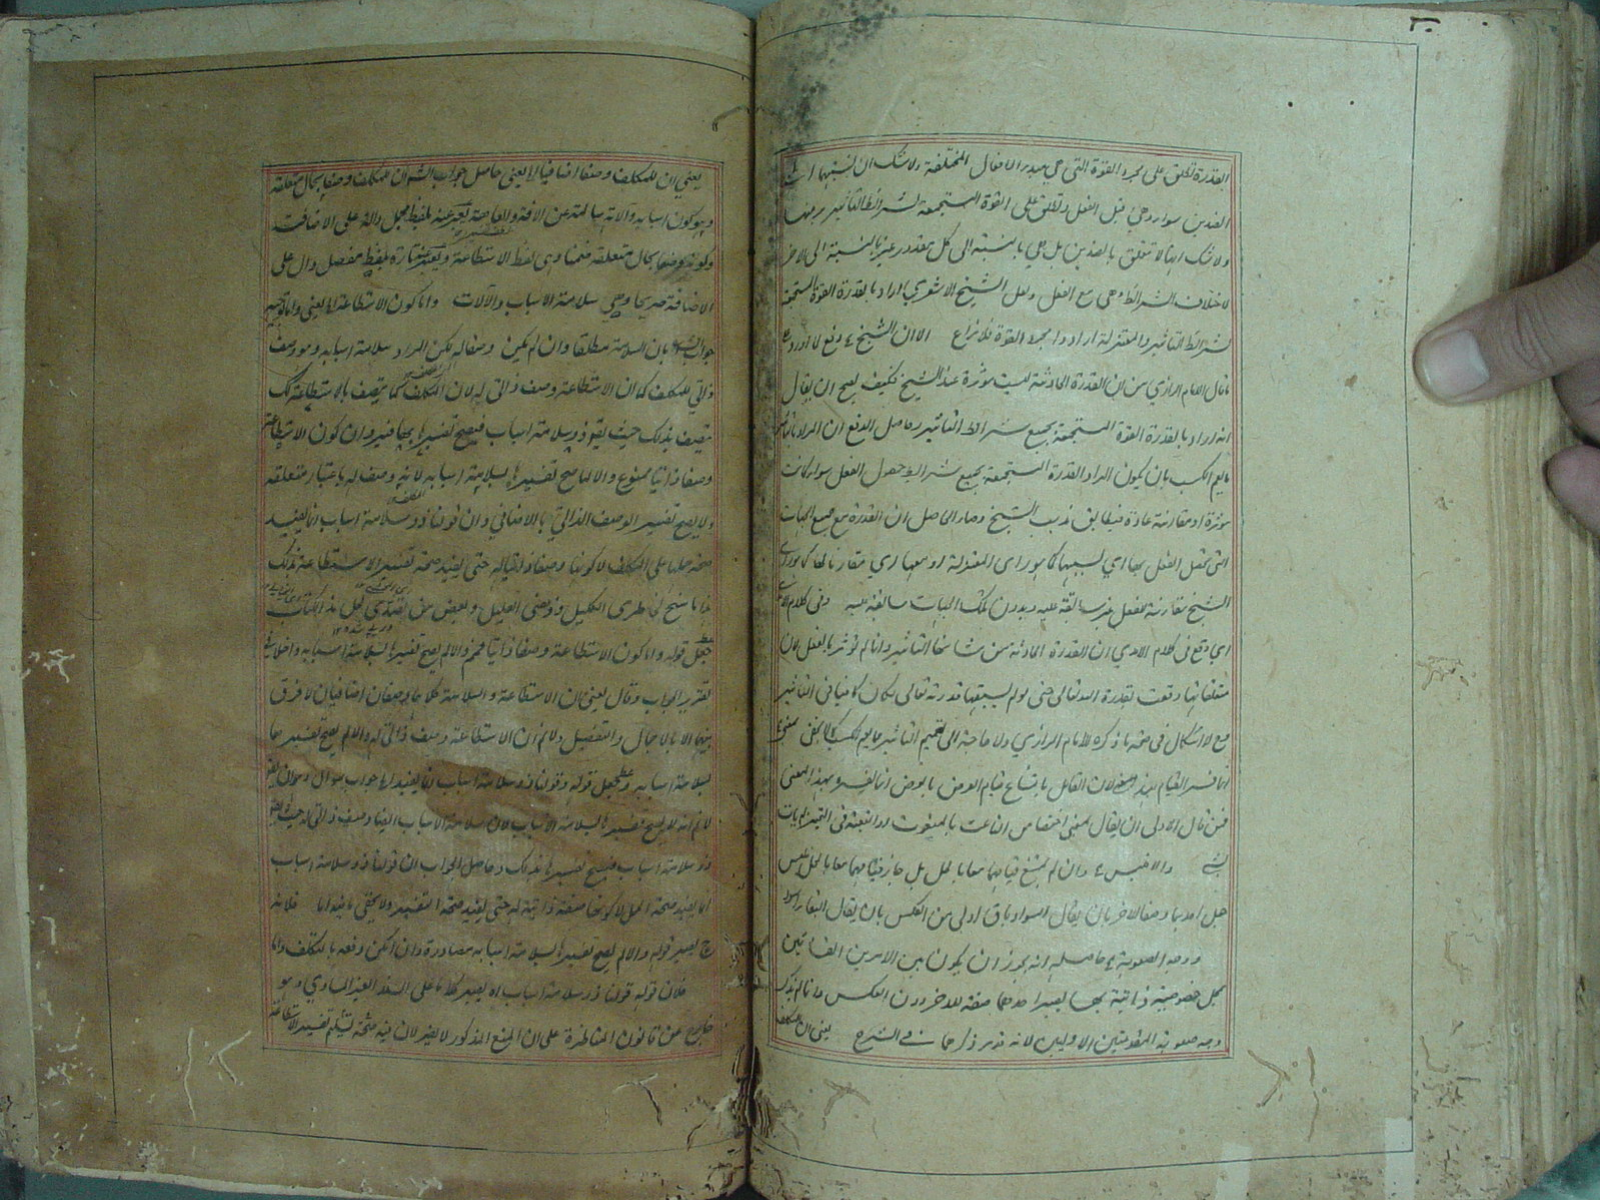 القدرة تطلق على مجرد القوة التي هي مبدء الافعال المختلفة ولا شك ان نسبتها الى
الضدين سواء وهي قبل الفعل وتطلق على القوة المستجمعة لشرائط التأثير
ولا شك انها لا تتعلق بالضدين بل هي بالنسبة الى كل مقدور غيرها بالنسبة الى الاخر
لاختلاف الشرائط وهي مع الفعل ولعل الشيخ الاشعري اراد بالقدرة القوة المستجمعة
لشرائط التأثير والمعتزلة ارادوا مجرد القوة فلا نزاع الا ان الشيخ
ما قال الامام الرازي من ان القدرة الحادثة ليست موثرة عند الشيخ فكيف يصح ان يقال
انه اراد بالقدرة القوة المستجمعة بجميع شرائط التأثير وحاصل الدفع ان المراد بالتأثير
ما يعم الكسب بان يكون المراد القدرة المستجمعة بجميع شرائط حصول الفعل سواء كانت
موثرة او مقارنة عادة فيطابق مذهب الشيخ وصار الحاصل ان القدرة مع جميع الجهات
التي يحصل الفعل بها اي بسببها كما هو رأى المعتزلة او معها اي مقارنا لها كما هو رأى
الشيخ مقارنة للفعل غير سابقة عليه وبدون تلك الجهات سابقة عليه وفي كلام
اي وقع في كلام الامدي ان القدرة الحادثة من شانها التأثير وانما لم توثر بالفعل لان
متعلقاتها وقعت بقدرة الله تعالى حتى لو لم يسبقها قدرته تعالى لكان كافيا في التأثير
مع لا اشكال في صحة ما ذكره الامام الرازي ولا حاجة الى تعميم التأثير بما يعم الكسب كما لا يخفى
انما فسر القيام بهذا المعنى لان القائل بامتناع قيام العرض بالعرض انما فسره بهذا المعنى
فمن قال الاولى ان يقال بمعنى اختصاص الناعت بالمنعوت او التبعية في التحيز
والا فليس وان لم يمتنع قيامهما معا بالمحل بل جاز قيامهما معا بالمحل فليس
جعل احدهما وصفا للاخر بان يقال السواد باق اولى من العكس بان يقال البقاء اسود
ووجه الصعوبة حاصله انه يجوز ان يكون بين الامرين القائمين
بمحل خصوصية ذاتية بها يصير احدهما صفة للاخر دون العكس وانما لم يذكر
وجه صعوبة المقدمتين الاوليين لانه قد مر ذكرهما في الشرح
يعني ان للمكلف
يعني ان للمكلف وصفا اضافيا الخ يعني حاصل جواب الشم ان للمكلف وصفا بحال متعلقه
وهو كون اسبابه وآلاته سالمة عن الافة والعاهة يعبر عنه بلفظ مجمل دالة على الاضافة
وكونه وصفا بحال متعلقه ضمنا وهي لفظ الاستطاعة ويعبر عنه تارة بلفظ مفصل دال على
الاضافة صريحا وهي سلامة الاسباب والآلات واما كون الاستطاعة الخ يعني
جواب الشم بان السلامة مطلقا وان لم يكن وصفا له لكن المراد سلامة اسبابه وهو وصف
ذاتي للمكلف كما ان الاستطاعة وصف ذاتي له لان المكلف كما يتصف بالاستطاعة كك
يتصف بذلك حيث يقول ذو سلامة اسباب فيصح تفسيرها بها ضير وان كون الاستطاعة
وصفا ذاتيا ممنوع والا لما صح تفسيرها بسلامة اسبابه لانه وصف له باعتبار متعلقه
ولا يصح تفسير الوصف الذاتي بالاضافي وان قولنا ذو سلامة اسباب انما يفيد
صحة حملها على المكلف لا كونها وصفا ذاتيا له حتى يفيد صحة تفسير الاستطاعة بذلك
هذا ما سنح لخاطري الكليل وذهني العليل وبعض من تصدى لحل هذا الكتاب
جعل قوله واما كون الاستطاعة وصفا ذاتيا فمم والا لم يصح تفسيرها بسلامة اسبابه داخلا في
تقرير الجواب وقال يعني ان الاستطاعة والسلامة كلاهما وصفان اضافيان لا فرق
بينهما الا بالاجمال والتفصيل ولا نم ان الاستطاعة وصف ذاتي له والا لم يصح تفسيرها
بسلامة اسبابه وجعل قوله وقولنا ذو سلامة اسباب انما يفيد الخ جواب سؤال
لا نم انه لا يصح تفسيرها بسلامة الاسباب لان سلامة الاسباب ايضا وصف ذاتي له حيث يقال
ذو سلامة اسباب فيصح تفسيرها بذلك وحاصل الجواب ان قولنا ذو سلامة اسباب
انما يفيد صحة الحمل لا كونها صفة ذاتية له حتى يفيد صحة التفسير ولا يخفى ما فيه اما فلانه
ح يصير قوله والا لم يصح تفسيرها بسلامة اسبابه مصادرة وان امكن دفعه بالتكلف واما
فلان قوله قولنا ذو سلامة اسباب اه يصير كلاما على السند الغير المساوي وهو
خارج عن قانون المناظرة على ان المنع المذكور لا يضر لان فيه صحة تسليم تفسير الاستطاعة